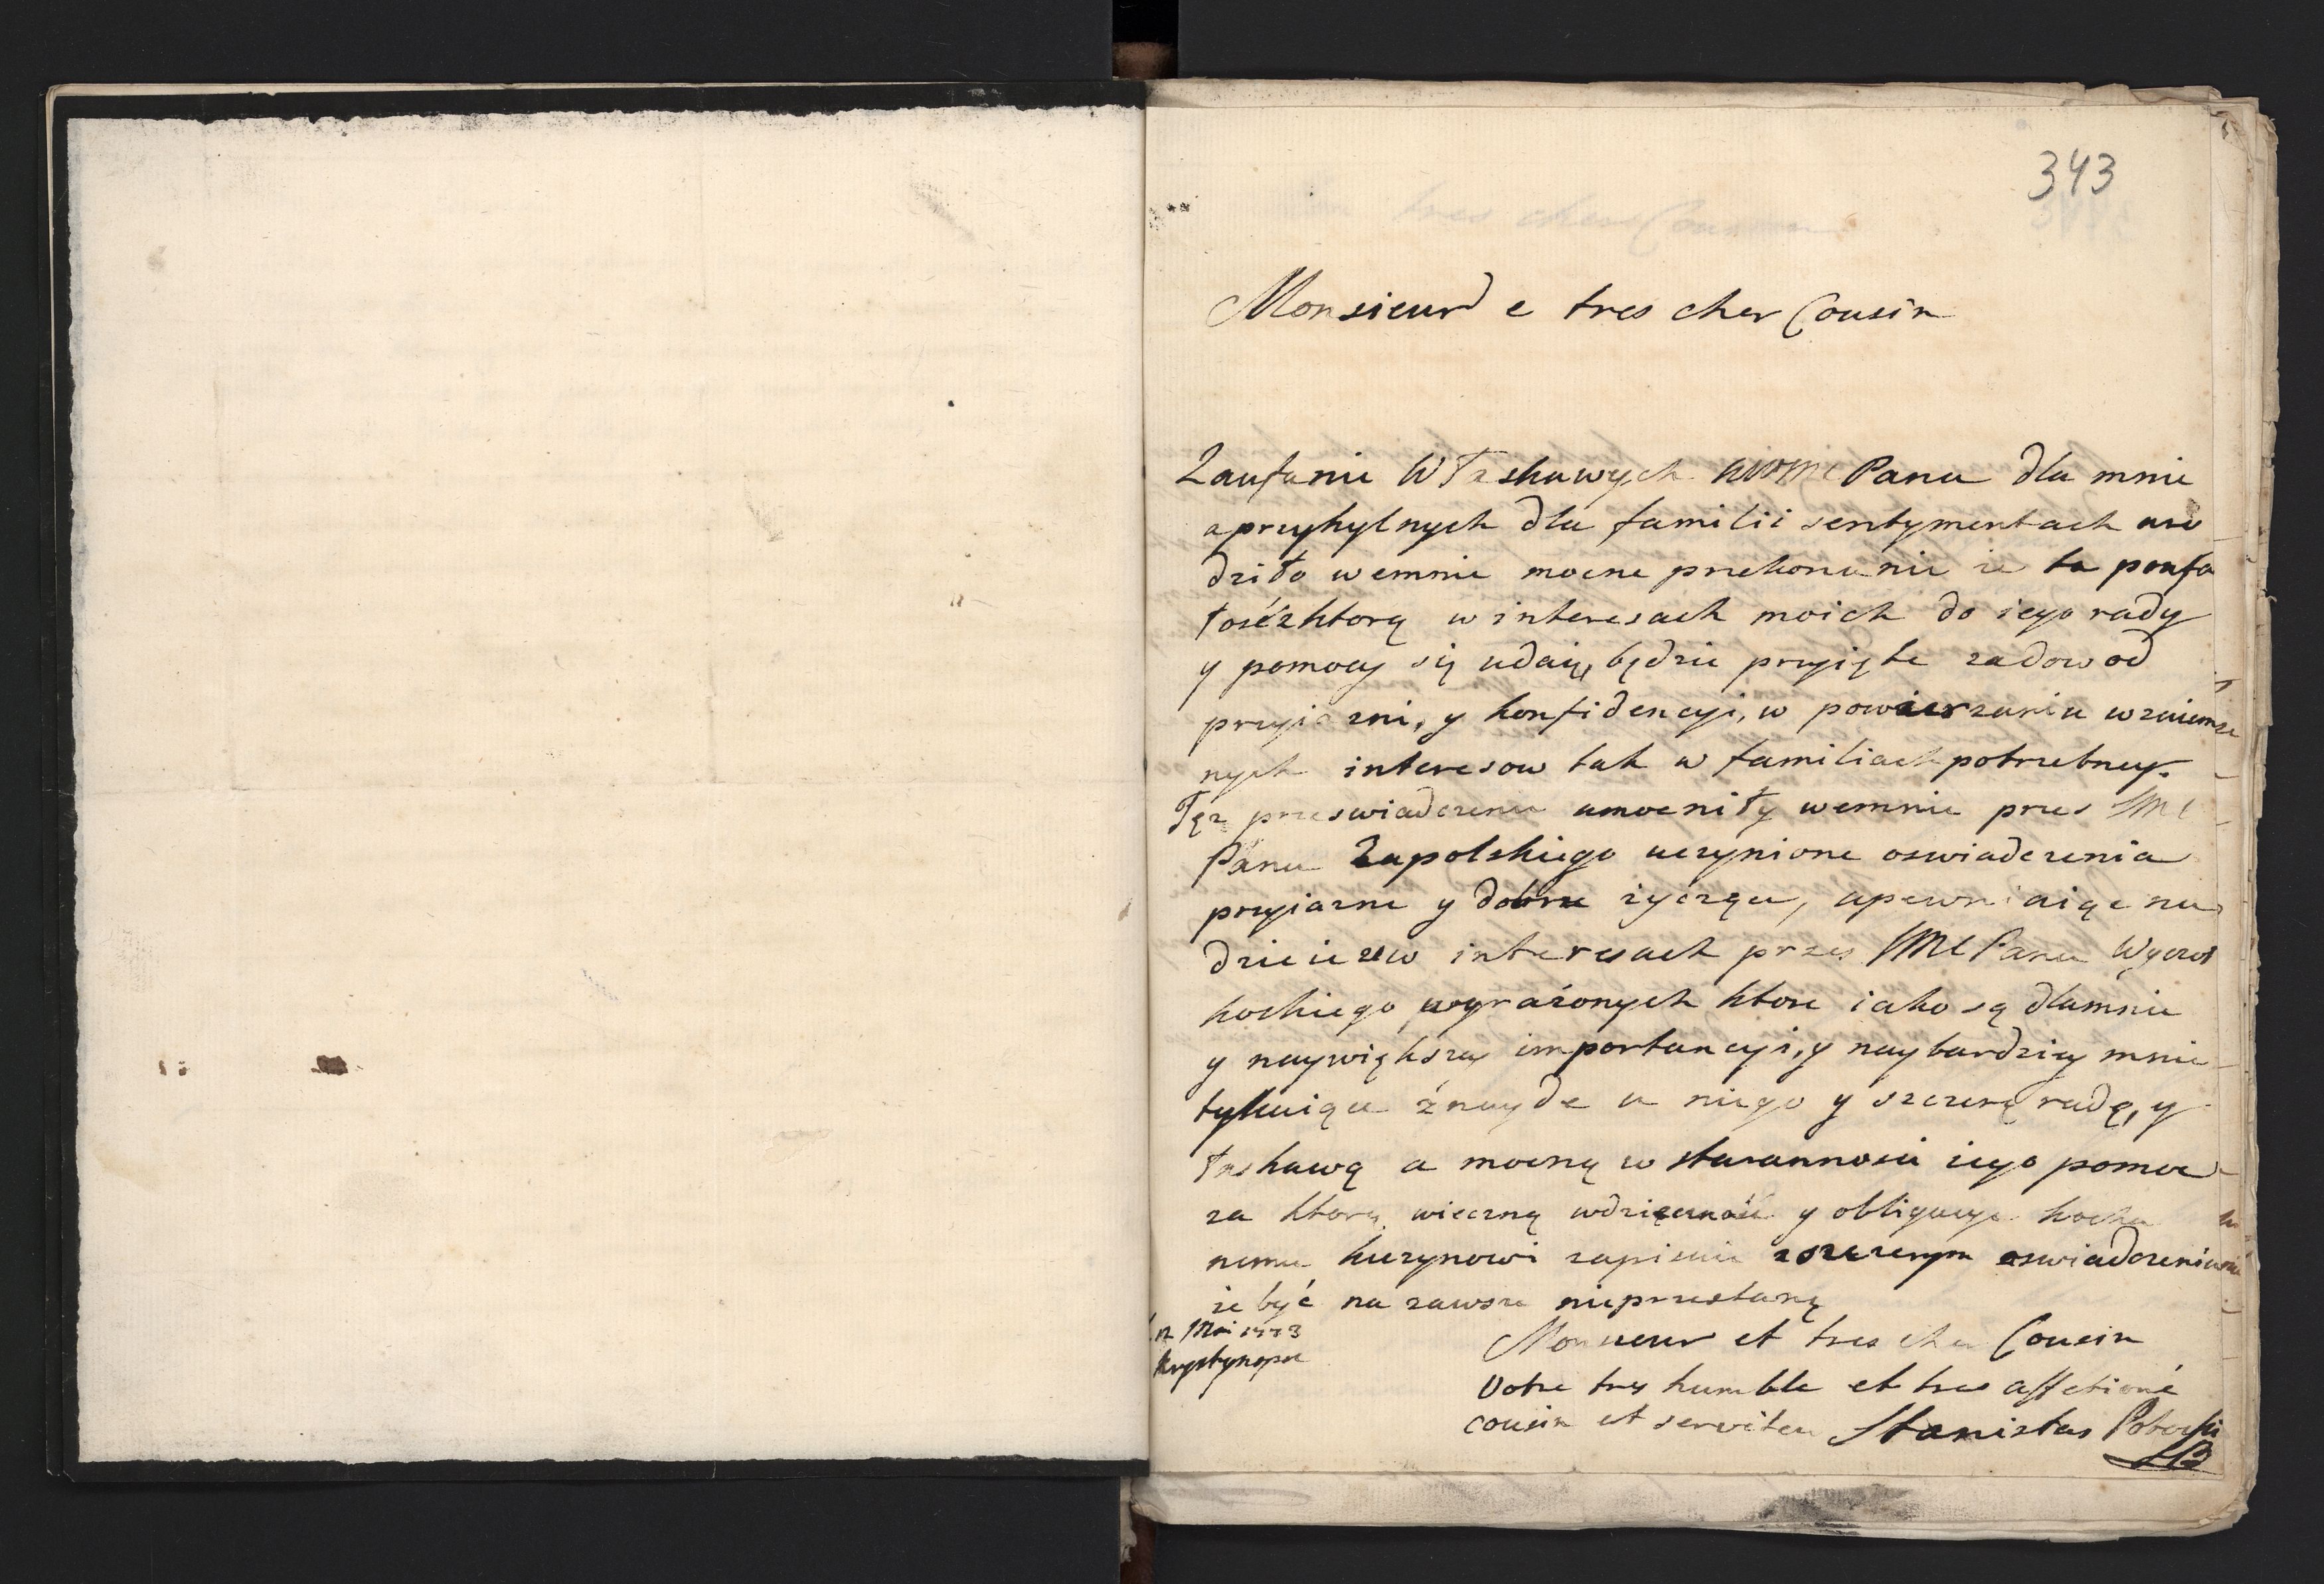 343
Monsieur e tres cher Cousin
Zaufanie W łaskawych WMC Pana dla mnie
a przyhylnych dla familii sentymentach uro
dziło wemnie mocne przekonanie ze ta poufa
łość z ktorą w interesach moich do iego rady
y pomocy się udaię, będzie przyięte zadowod
przyiazni, y konfidencyi, w powierzaniu wzaiem
nych interesow tak w familiach potrzebney.
Tęz przeswiadczenie umocniły wemnie przes JMC
Pana Zapolskiego uczynione oswiadczenia
przyiazne y dobrze zyczące, upewniaiące na
dzieie ze w interesach przes JMC Pana
kockiego wyrażonych ktore iako są dlamnie
y naywiększey importancyi, y naybardziey mnie
tykaiące znayde u niego y szczerą radę, y
łaskawą a mocną w staranności iego pomoc
za ktorą wieczną wdzięczność y obligacye kocha
nemu kuzynowi zapisuie z szczerym oswiadczeniem
ze być na zawsze nieprzestanę
12 Mai 1773
Krystynopol
Monsieur et tres cher Cousin
Votre tres humble et tres affetioné
cousin et serviteur Stanislas Potocki